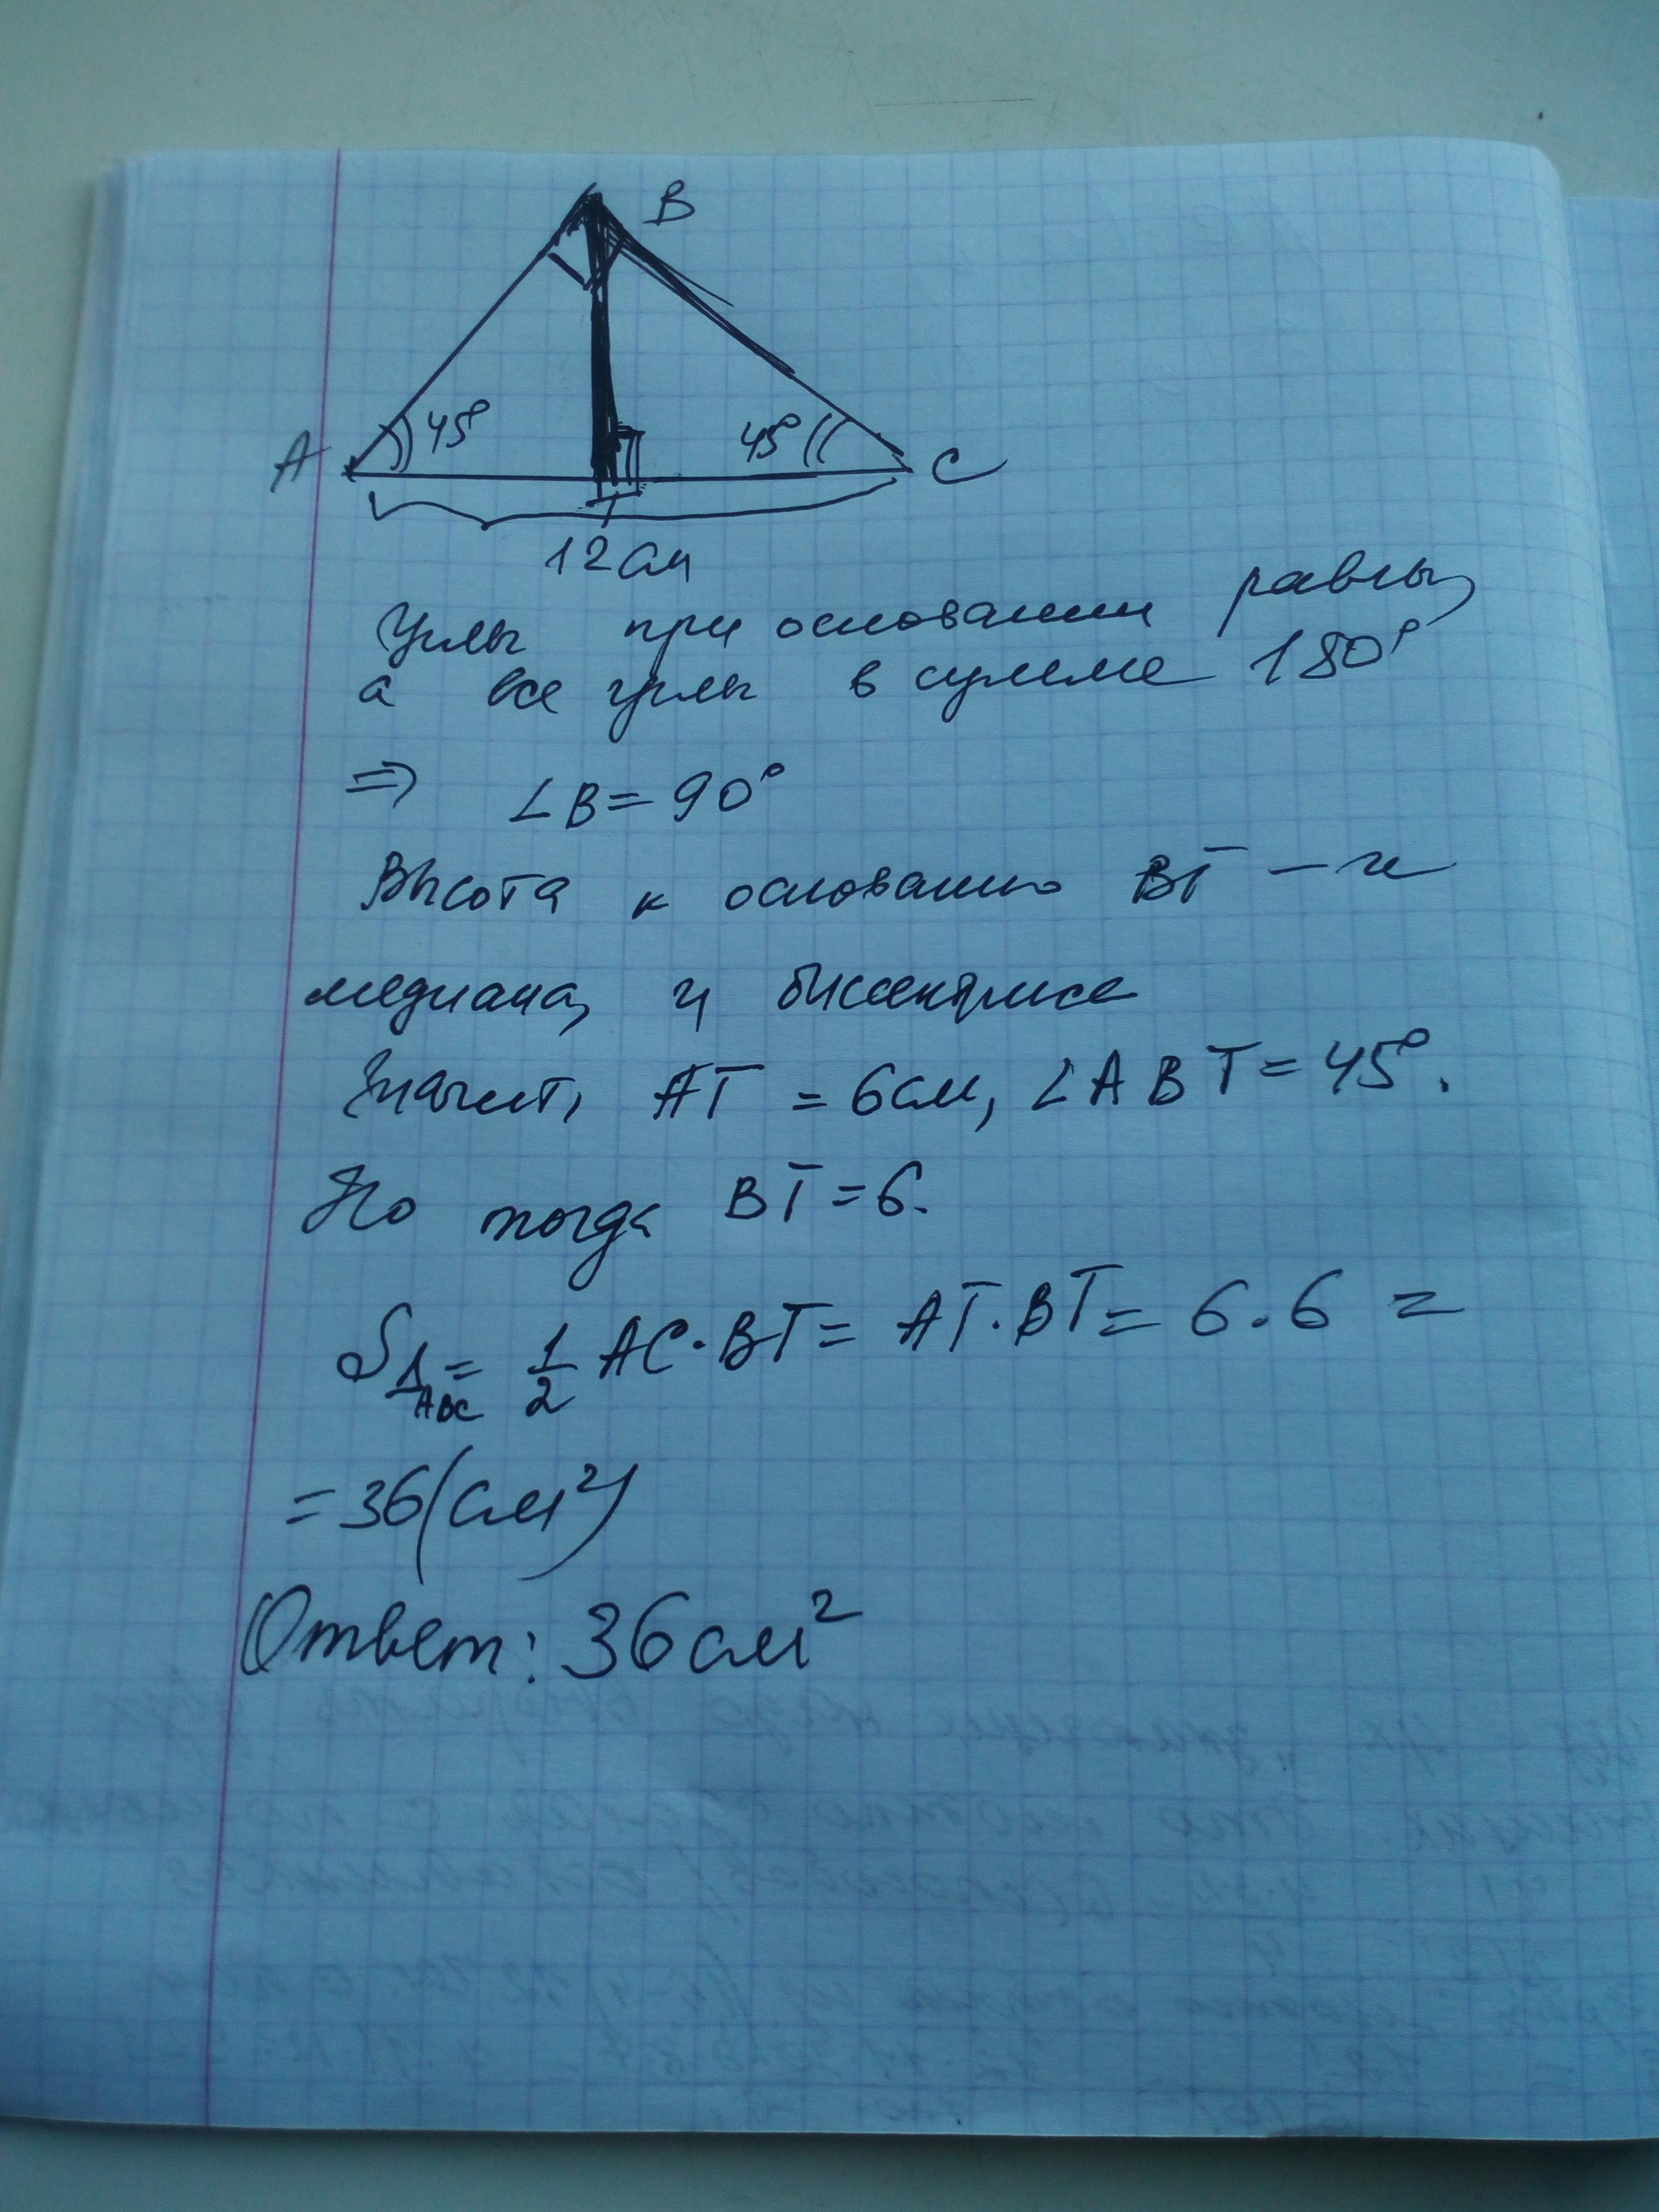 B
45°
45°
A
C
12 см
Углы при основании равны,
а все углы в сумме 180°
⇒ ∠B = 90°
Высота к основанию BT – и
медиана, и биссектриса
Значит, AT = 6 см, ∠ABT = 45°.
Но тогда BT = 6.
S△ABC = 1/2 AC · BT = AT · BT = 6 · 6 =
= 36 (см²)
Ответ: 36 см²